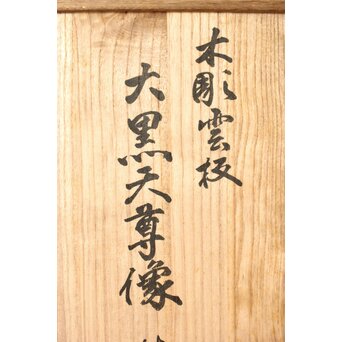 木彫雲板
大黒天尊像